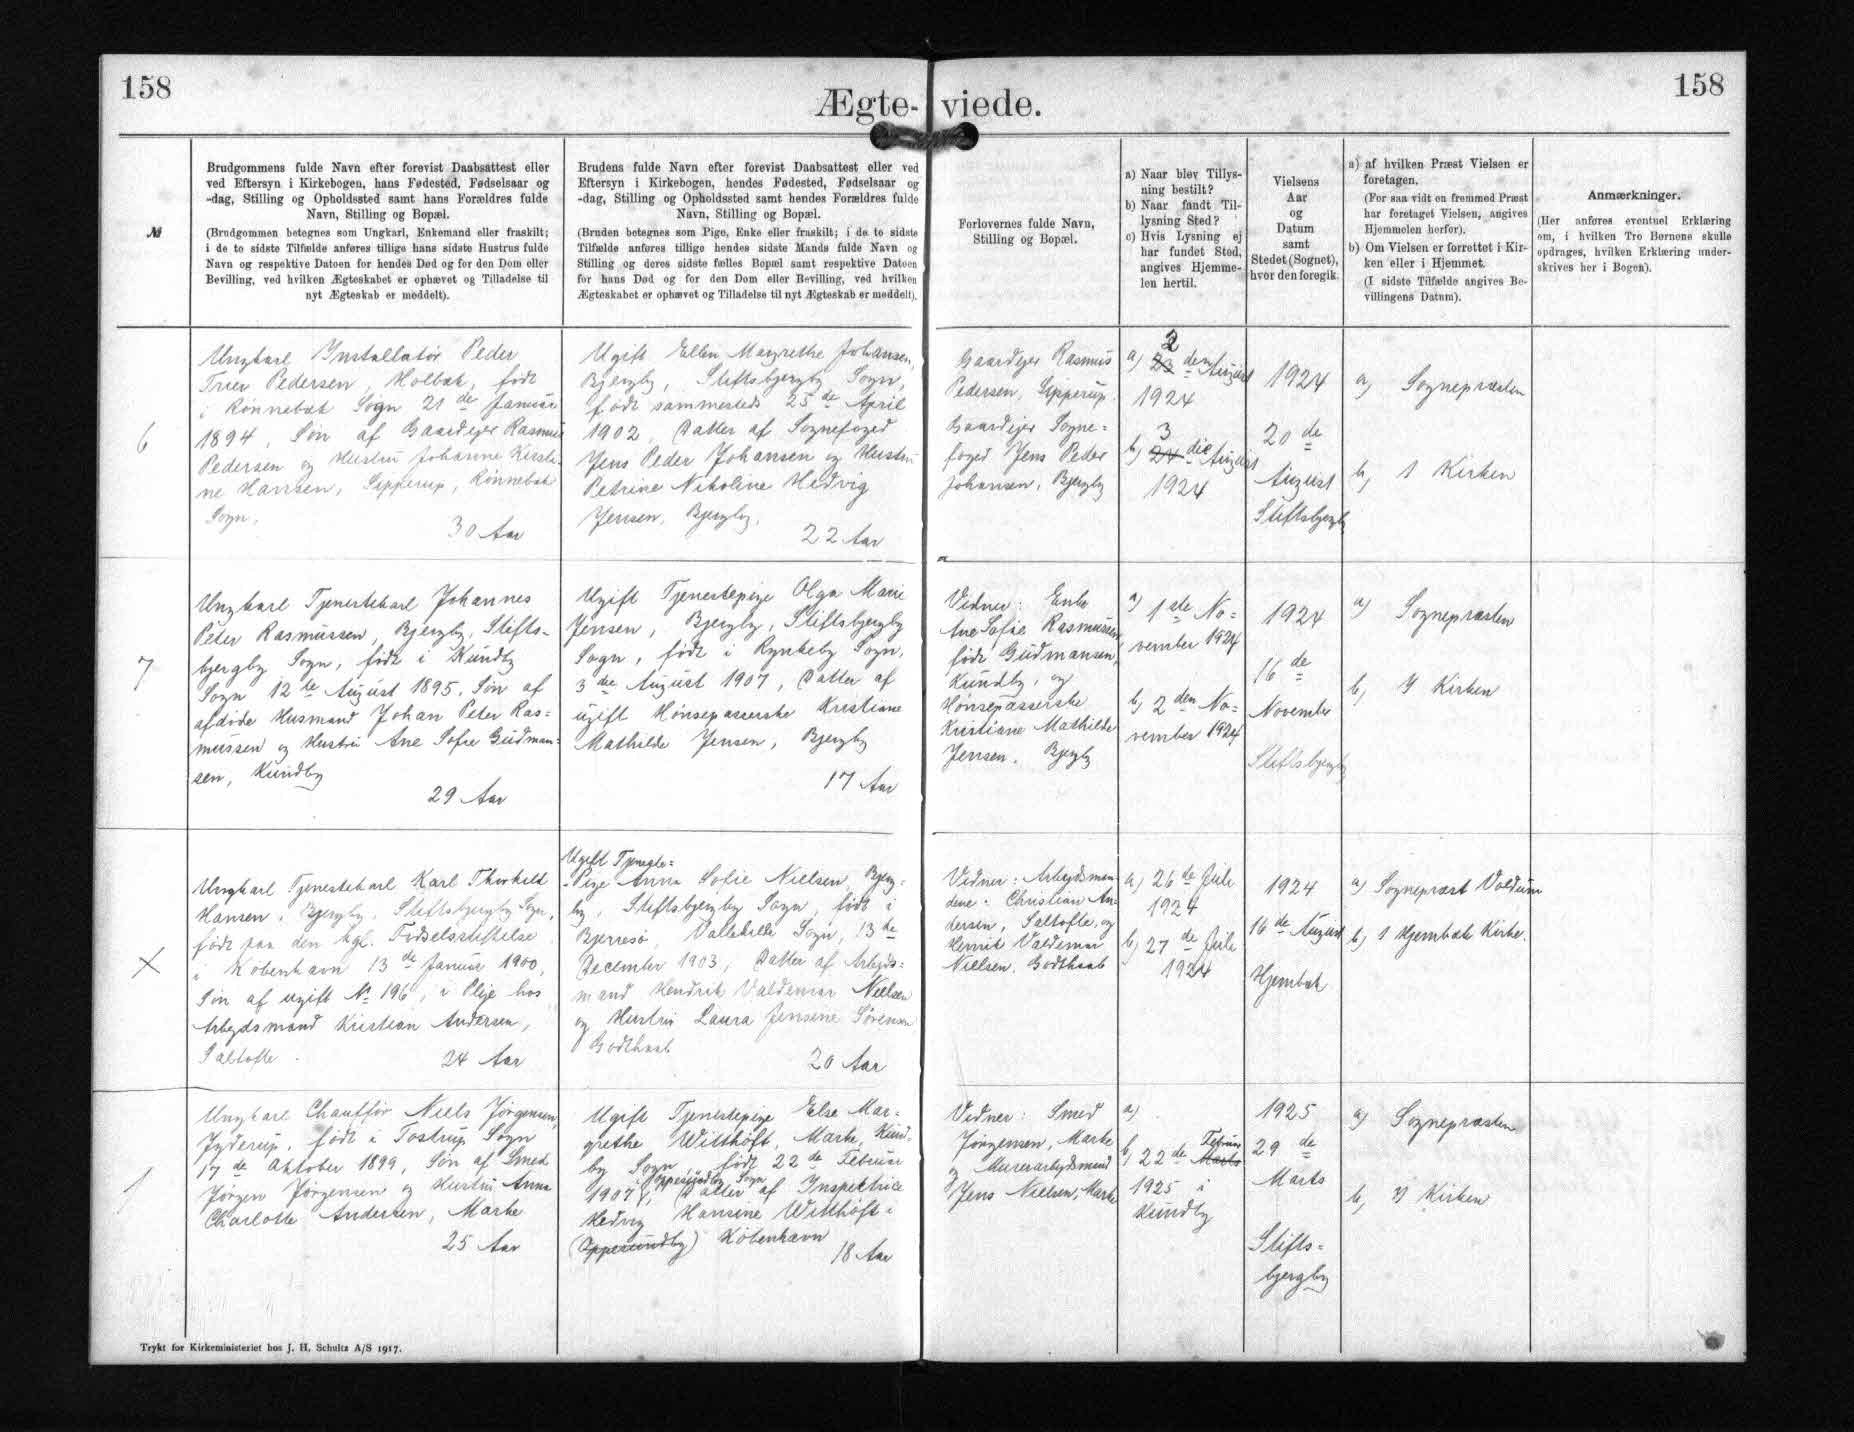 158
158
Ægte-viede.
№
Brudgommens fulde Navn efter forevist Daabsattest eller
ved Eftersyn i Kirkebogen, hans Fødested, Fødselsaar og
-dag, Stilling og Opholdssted samt hans Forældres fulde
Navn, Stilling og Bopæl.
(Brudgommen betegnes som Ungkarl, Enkemand eller fraskilt;
i de to sidste Tilfælde anføres tillige hans sidste Hustrus fulde
Navn og respektive Datoen for hendes Død og for den Dom eller
Bevilling, ved hvilken Ægteskabet er ophævet og Tilladelse til
nyt Ægteskab er meddelt).
Brudens fulde Navn efter forevist Daabsattest eller ved
Eftersyn i Kirkebogen, hendes Fødested, Fødselsaar og
-dag, Stilling og Opholdssted samt hendes Forældres fulde
Navn, Stilling og Bopæl.
(Bruden betegnes som Pige, Enke eller fraskilt; i de to sidste
Tilfælde anføres tillige hendes sidste Mands fulde Navn og
Stilling og deres sidste fælles Bopæl samt respektive Datoen
for hans Død og for den Dom eller Bevilling, ved hvilken
Ægteskabet er ophævet og Tilladelse til nyt Ægteskab er meddelt).
Forlovernes fulde Navn,
Stilling og Bopæl.
a) Naar blev Tillys-
ning bestilt?
b) Naar fandt Til-
lysning Sted?
c) Hvis Lysning ej
har fundet Sted,
angives Hjemme-
len hertil.
Vielsens
Aar
og
Datum
samt
Stedet (Sognet),
hvor den foregik.
a) af hvilken Præst Vielsen er
foretagen.
(For saa vidt en fremmed Præst
har foretaget Vielsen, angives
Hjemmelen herfor).
b) Om Vielsen er forrettet i Kir-
ken eller i Hjemmet.
(I sidste Tilfælde angives Be-
villingens Datum).
Anmærkninger.
(Her anføres eventuel Erklæring
om, i hvilken Tro Børnene skulle
opdrages, hvilken Erklæring under-
skrives her i Bogen).
6
Ungkarl Installatør Peder
Trier Pedersen, Holbæk, født
i Rønnebæk Sogn 21de Januar
1894, Søn af Gaardejer Rasmus
Pedersen og Hustru Johanne Kirsti-
ne Hansen, Sipperup, Rønnebæk
Sogn.
30 Aar
Ugift Ellen Margrethe Johansen,
Bjergby, Stiftsbjergby Sogn,
født sammesteds 25de April
1902, Datter af Sognefoged
Jens Peder Johansen og Hustru
Petrine Nikoline Hedvig
Jensen, Bjergby.
22 Aar
Gaardejer Rasmus
Pedersen, Sipperup.
Gaardejer Sogne=
foged Jens Peder
Johansen, Bjergby
2
a) 23 den August
1924
3
b) 24 die August
1924
1924
20de
August
Stiftsbjergby
a) Sognepræsten
b) I Kirken
7
Ungkarl Tjenestekarl Johannes
Peter Rasmussen, Bjergby, Stifts-
bjergby Sogn, født i Kundby
Sogn 12te August 1895, Søn af
afdøde Husmand Johan Peter Ras=
mussen og Hustru Ane Sofie Gudman-
sen, Kundby
29 Aar
Ugift Tjenestepige Olga Marie
Jensen, Bjergby, Stiftsbjergby
Sogn, født i Rynkeby Sogn,
3die August 1907, Datter af
ugift Hønsepasserske Kristiane
Mathilde Jensen, Bjergby
17 Aar
Vidner: Enke
Ane Sofie Rasmussen
født Gudmansen,
Kundby, og
Hønsepasserske
Kristiane Mathilde
Jensen, Bjergby
a) 1ste No=
vember 1924
b) 2den No=
vember 1924
1924
16de
November
Stiftsbjergby
a) Sognepræsten
b) I Kirken
X
Ungkarl Tjenestekarl Karl Thorkild
Hansen, Bjergby, Stiftsbjergby Sogn,
født paa den kgl. Fødselsstiftelse
i København 13de Januar 1900,
Søn af ugift № 196, i Pleje hos
Arbejdsmand Kristian Andersen,
Saltofte.
24 Aar
Ugift Tjeneste=
-Pige Anna Sofie Nielsen, Bjerg-
by, Stiftsbjergby Sogn, født i
Bjerresø, Vallekilde Sogn, 13de
December 1903, Datter af Arbejds=
mand Hendrik Valdemar Nielsen
og Hustru Laura Jensine Sørensen
Godthaab
20 Aar
Vidner: Arbejdsmæn-
dene: Christian An-
dersen, Saltofte, og
Henrik Valdemar
Nielsen, Godthaab
a) 26de Juli
1924
b) 27de Juli
1924
1924
16de August
Hjembæk
a) Sognepræst Voldum
b) I Hjembæk Kirke.
1
Ungkarl Chauffør Niels Jørgensen,
Jyderup, født i Tostrup Sogn
17de Oktober 1899, Søn af Smed
Jørgen Jørgensen og Hustru Anna
Charlotte Andersen, Marke
25 Aar
Ugift Tjenestepige Else Mar=
grethe Witthøft, Marke, Kund-
by Sogn, født 22de Februar
i Oppesundby Sogn
1907, Datter af Inspektrice
Hedvig Hansine Witthøft i
(Oppesundby) København
18 Aar
Vidner: Smed
Jørgensen, Marke
og Murerarbejdsmand
Jens Nielsen, Marke
a)
Februar
b) 22de Marts
1925 i
Kundby
1925
29de
Marts
Stifts=
bjergby
a) Sognepræsten
b) I Kirken
Trykt for Kirkeministeriet hos J. H. Schultz A/S 1917.